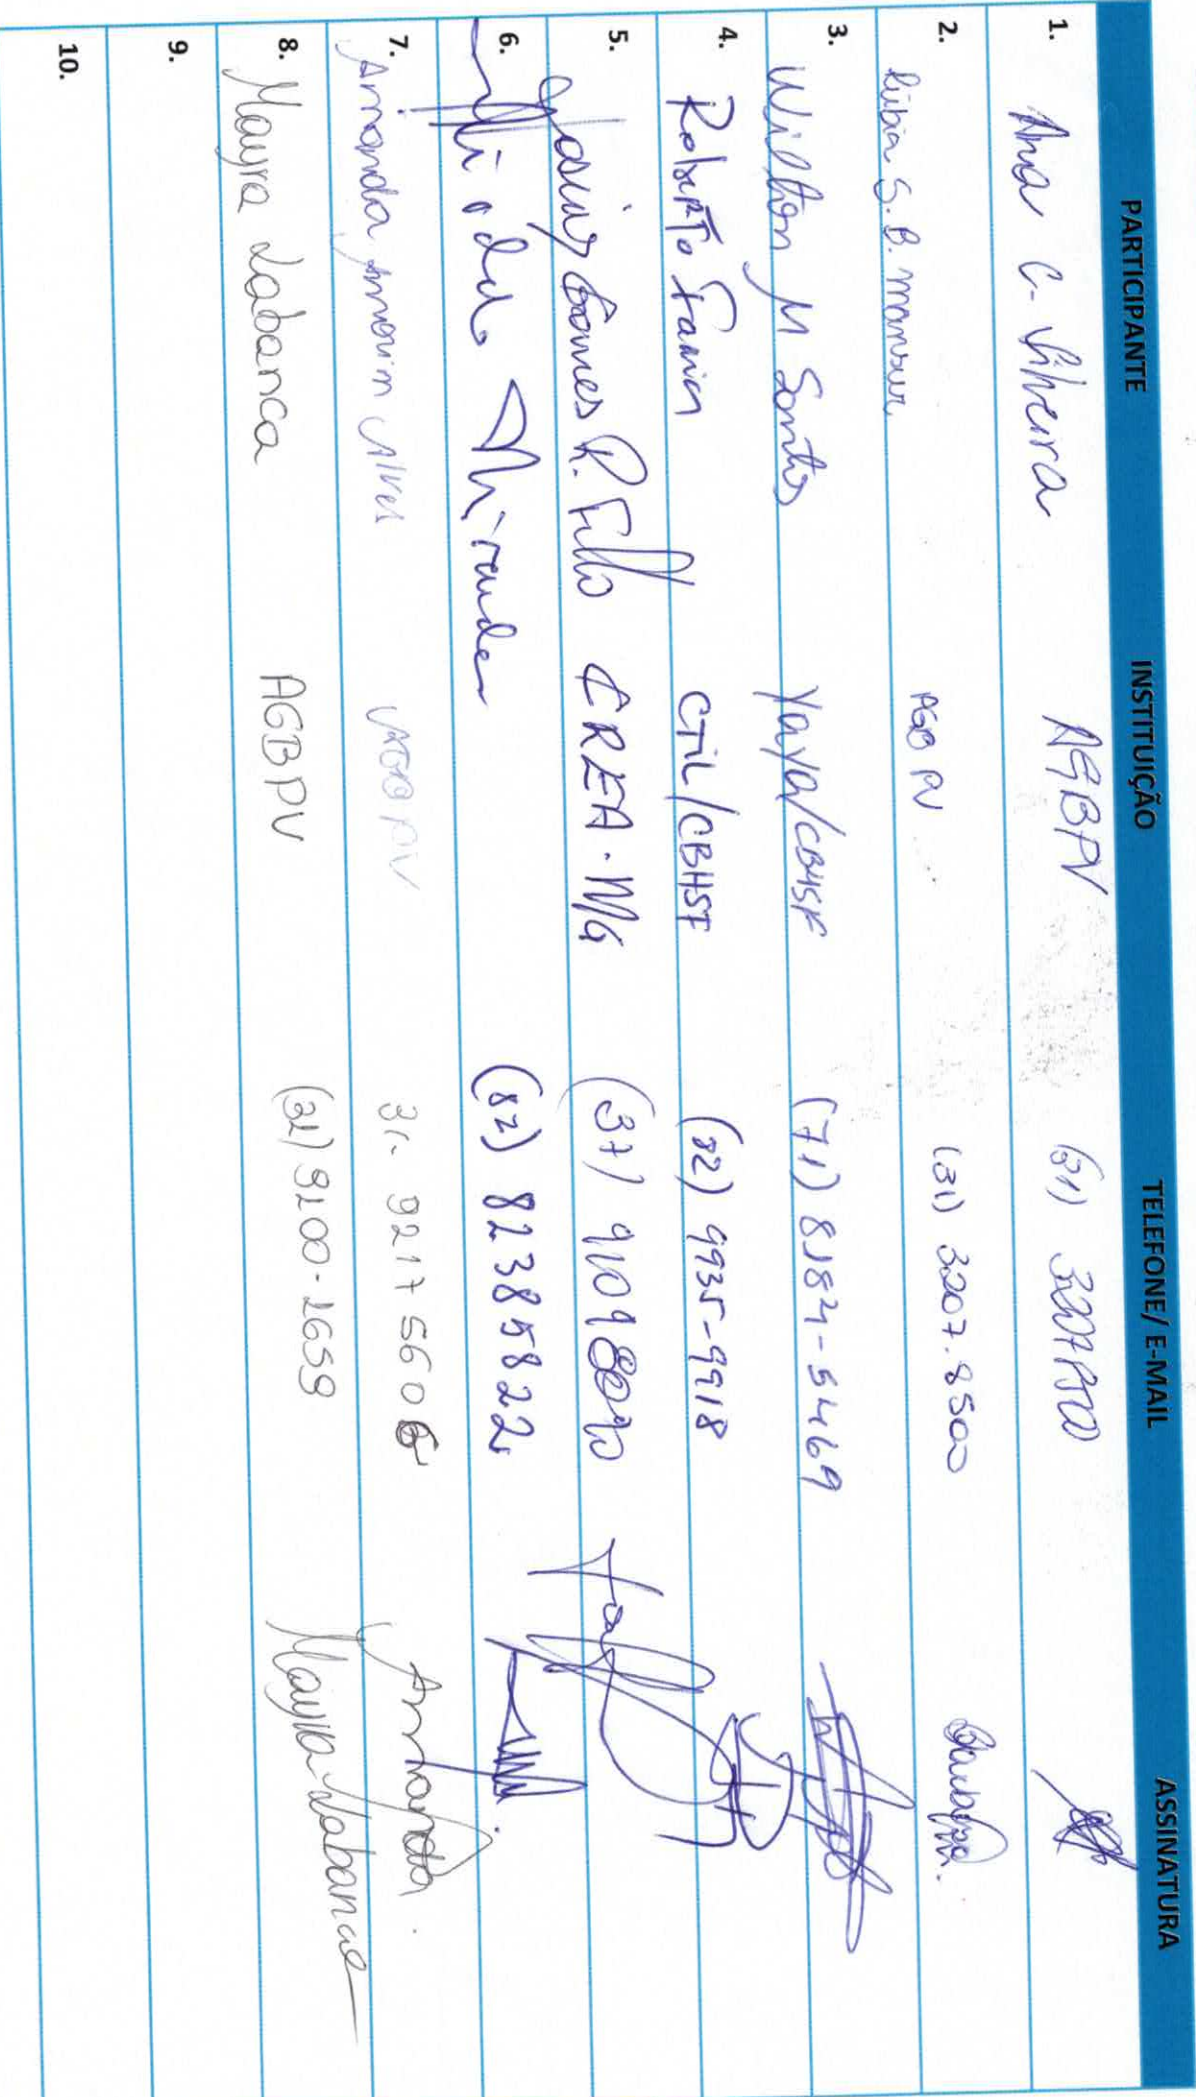 PARTICIPANTE INSTITUIÇÃO TELEFONE/ E-MAIL ASSINATURA
1. Ana C. Silveira AGBPV (31) 32078500
2. Rúbia S. B. Mansur AGB PV (31) 3207.8500
3. Wilton M Santos Yaya/CBHSF (71) 8184-5469
4. Roberto Farias CTIL/CBHSF (82) 9935-9918
5. Gomes R. Filho CREA-MG (37) 91098090
6. Miranda (82) 82385822
7. Amanda Amorim Alves 31. 9217 5606 Amanda
8. Mayra Labanca AGBPV (31) 9100-1659 Mayra Labanca
9.
10.